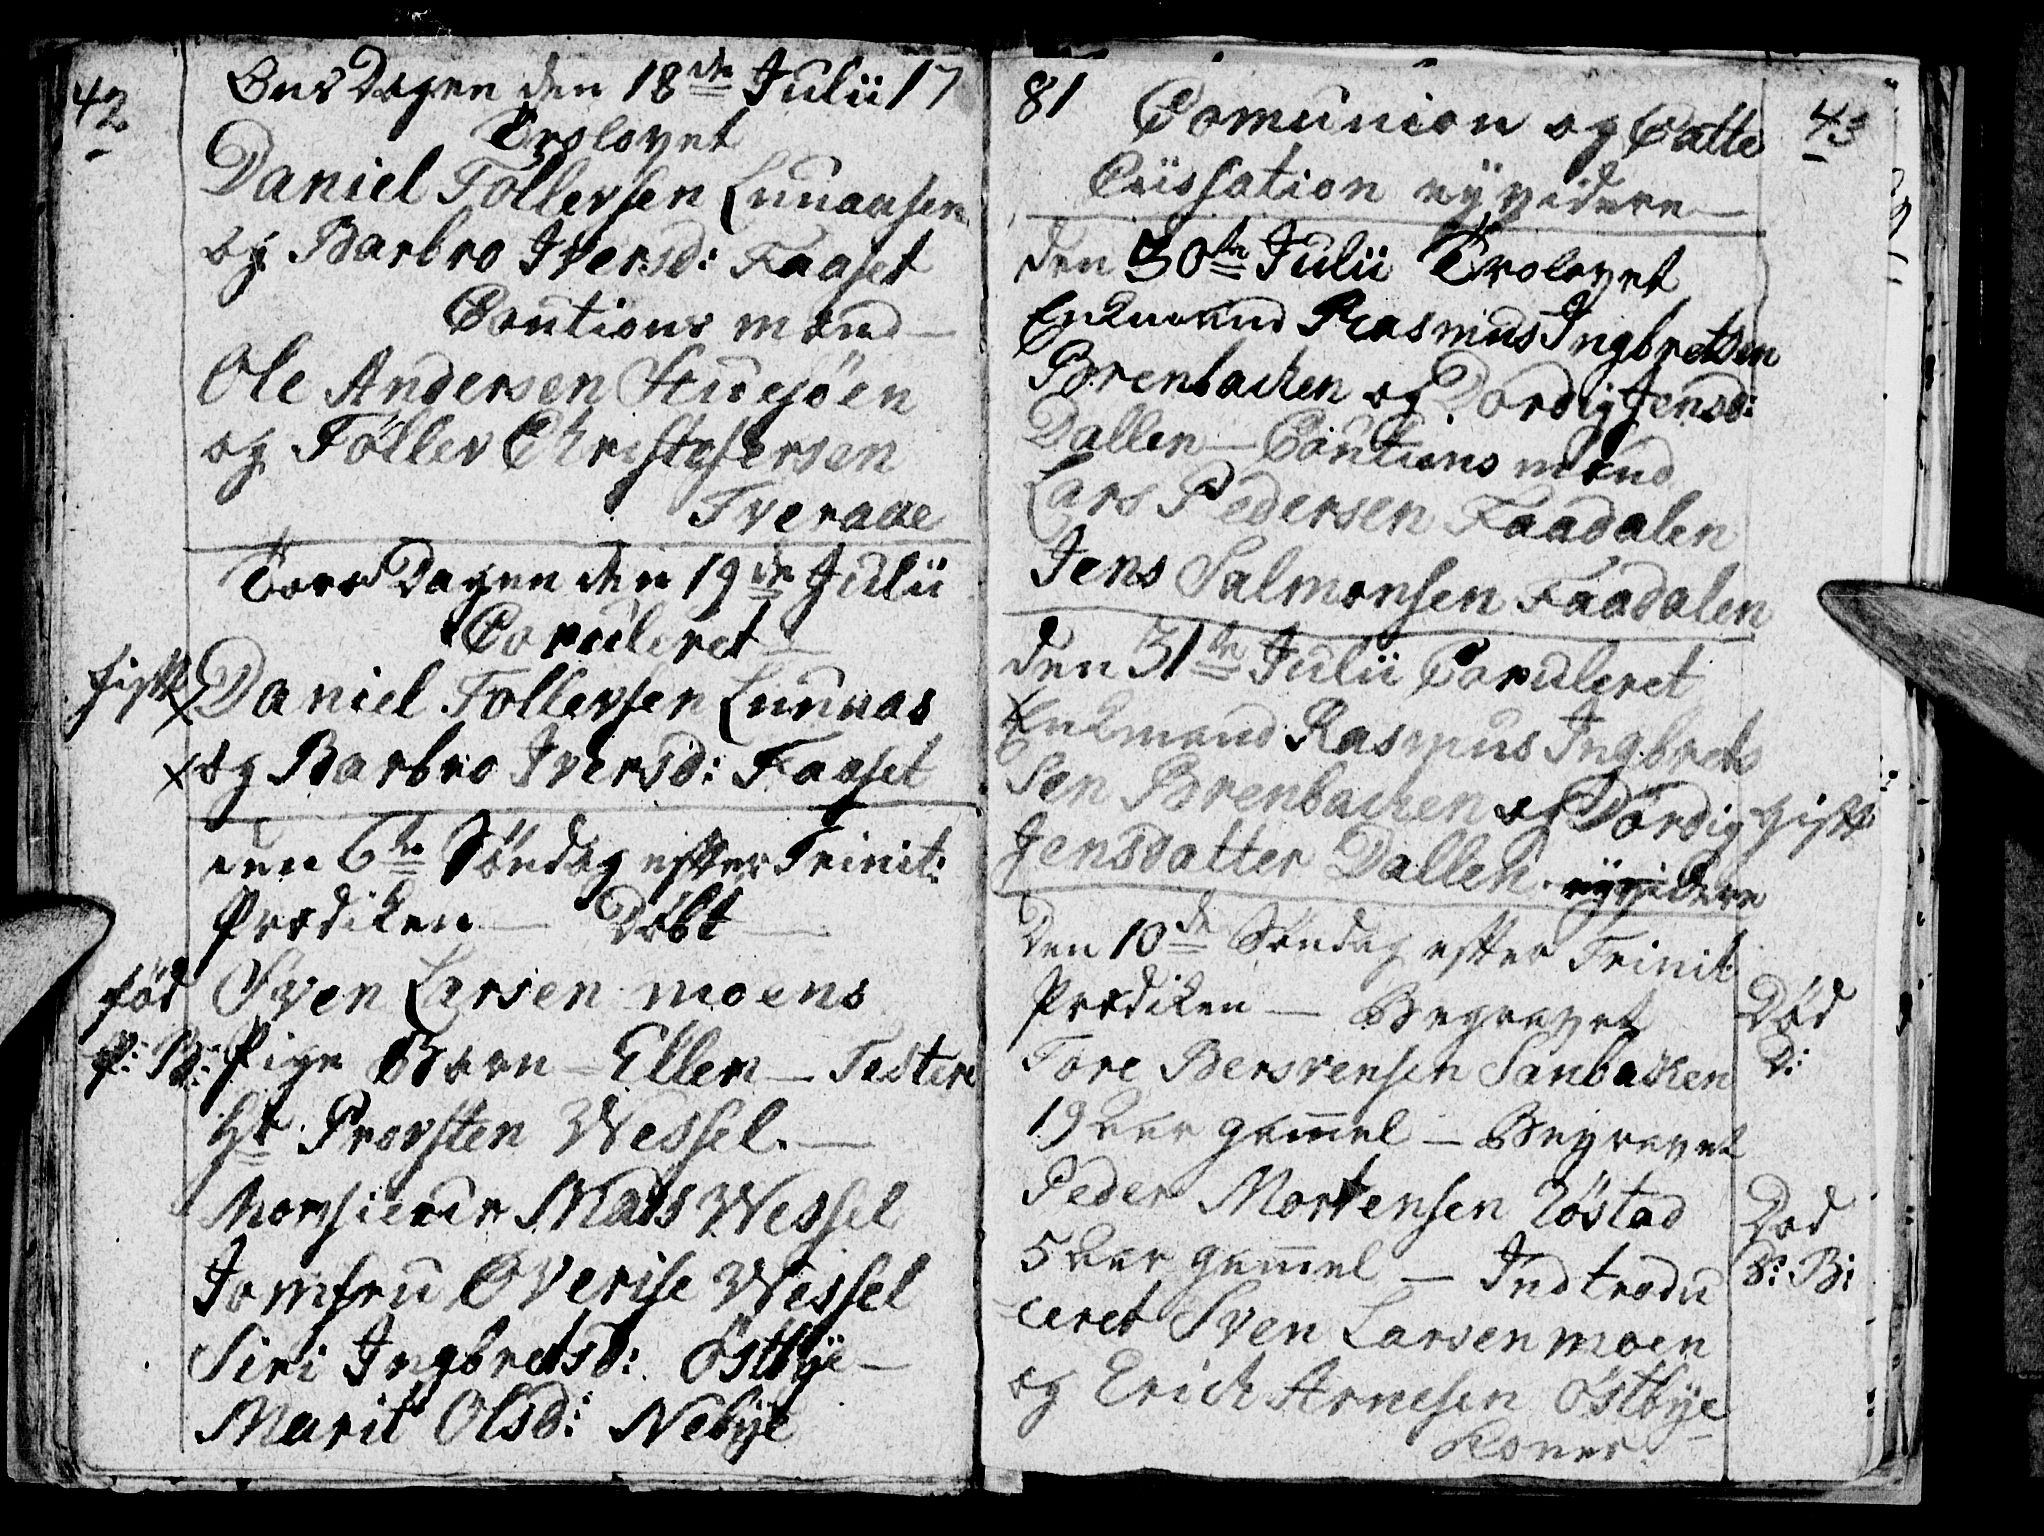 42
Onsdagen den 18de Julii 17
Trolovet
Daniel Tollevsen Luuaasen
og Barbro Iversd: Faaset
Cautions mænd —
Ole Andersen Stuesöen
og Tøllev Christofersen
Tveraae
Torsdagen den 19de Julii
Copuleret —
gift
Daniel Tollevsen Luuaas
og Barbro Iversd: Faaset
den 6te Søndag efter Trinit:
Prædiken — Døbt —
fød
Sven Larsen moens
P: B: Pige Barn — Ellen — Testere
Hr Provsten Wessel. —
Monsieur Mads Wessel
Jomfru Overise Wessel
Siri Ingbretsd: Östbÿe —
Marit Olsd: Nebÿe
81
43
Comunion og Catte
Cüssation eÿvidere —
den 30te Julii Trolovet
Enkemand Rasmus Ingbretsen
Brenbacken og Dordig Jensd:
Dallen — Cautions mænd
Lars Pedersen Faadalen
Jens Salmonsen Faadalen
den 31te Julii Copuleret
Enkemand Rasmus Ingbrets
sen Brenbacken og Dordig gift
Jensdatter Dallen. eÿvidere
Den 10de Søndag efter Trinit
Prædiken — Begravet
Død
Tore Bersvensen Sanbacken
D:
19 Aar gammel — Begravet
Peder Mortensen Röstad
Død
5 Aar gammel — Indtrodu
B: B:
ceret Sven Larsen moen
og Erich Arnesen Östbÿe
Koner.